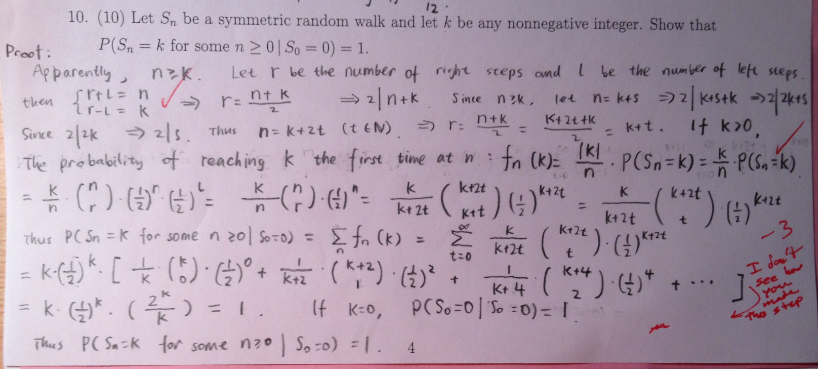 12.
10. (10) Let Sₙ be a symmetric random walk and let k be any nonnegative integer. Show that
P(Sₙ = k for some n ≥ 0 | S₀ = 0) = 1.
Proof:
Apparently, n≥k. Let r be the number of right steps and l be the number of left steps.
then { r+l = n
r-l = k ✓ ⇒ r = (n+k)/2 ⇒ 2|n+k. Since n≥k, let n= k+s ⇒ 2|k+s+k ⇒ 2|2k+s
Since 2|2k ⇒ 2|s. Thus n = k+2t (t∈N). ⇒ r = (n+k)/2 = (k+2t+k)/2 = k+t. If k>0,
The probability of reaching k the first time at n : fₙ(k) = |k|/n · P(Sₙ=k) = k/n · P(Sₙ=k) ✓
= k/n · (n r) · (1/2)^r · (1/2)^l = k/n (n r) · (1/2)^n = k/(k+2t) (k+2t k+t) (1/2)^(k+2t) = k/(k+2t) (k+2t t) · (1/2)^(k+2t)
Thus P(Sn = k for some n≥0 | S₀=0) = Σ^∞ fₙ(k) = Σ_{t=0}^∞ k/(k+2t) (k+2t t) · (1/2)^(k+2t) -3
= k·(1/2)^k · [ 1/k · (k 0) · (1/2)^0 + 1/(k+2) · (k+2 1) · (1/2)^2 + 1/(k+4) · (k+4 2) · (1/2)^4 + ··· ]
I don't
see how
you made
the step
= k · (1/2)^k · (2^k/k) = 1. If k=0, P(S₀=0 | S₀=0) = 1
Thus P(Sn=k for some n≥0 | S₀=0) = 1.
4